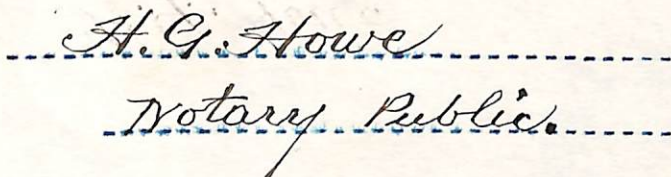 H. G. Howe
Notary Public.